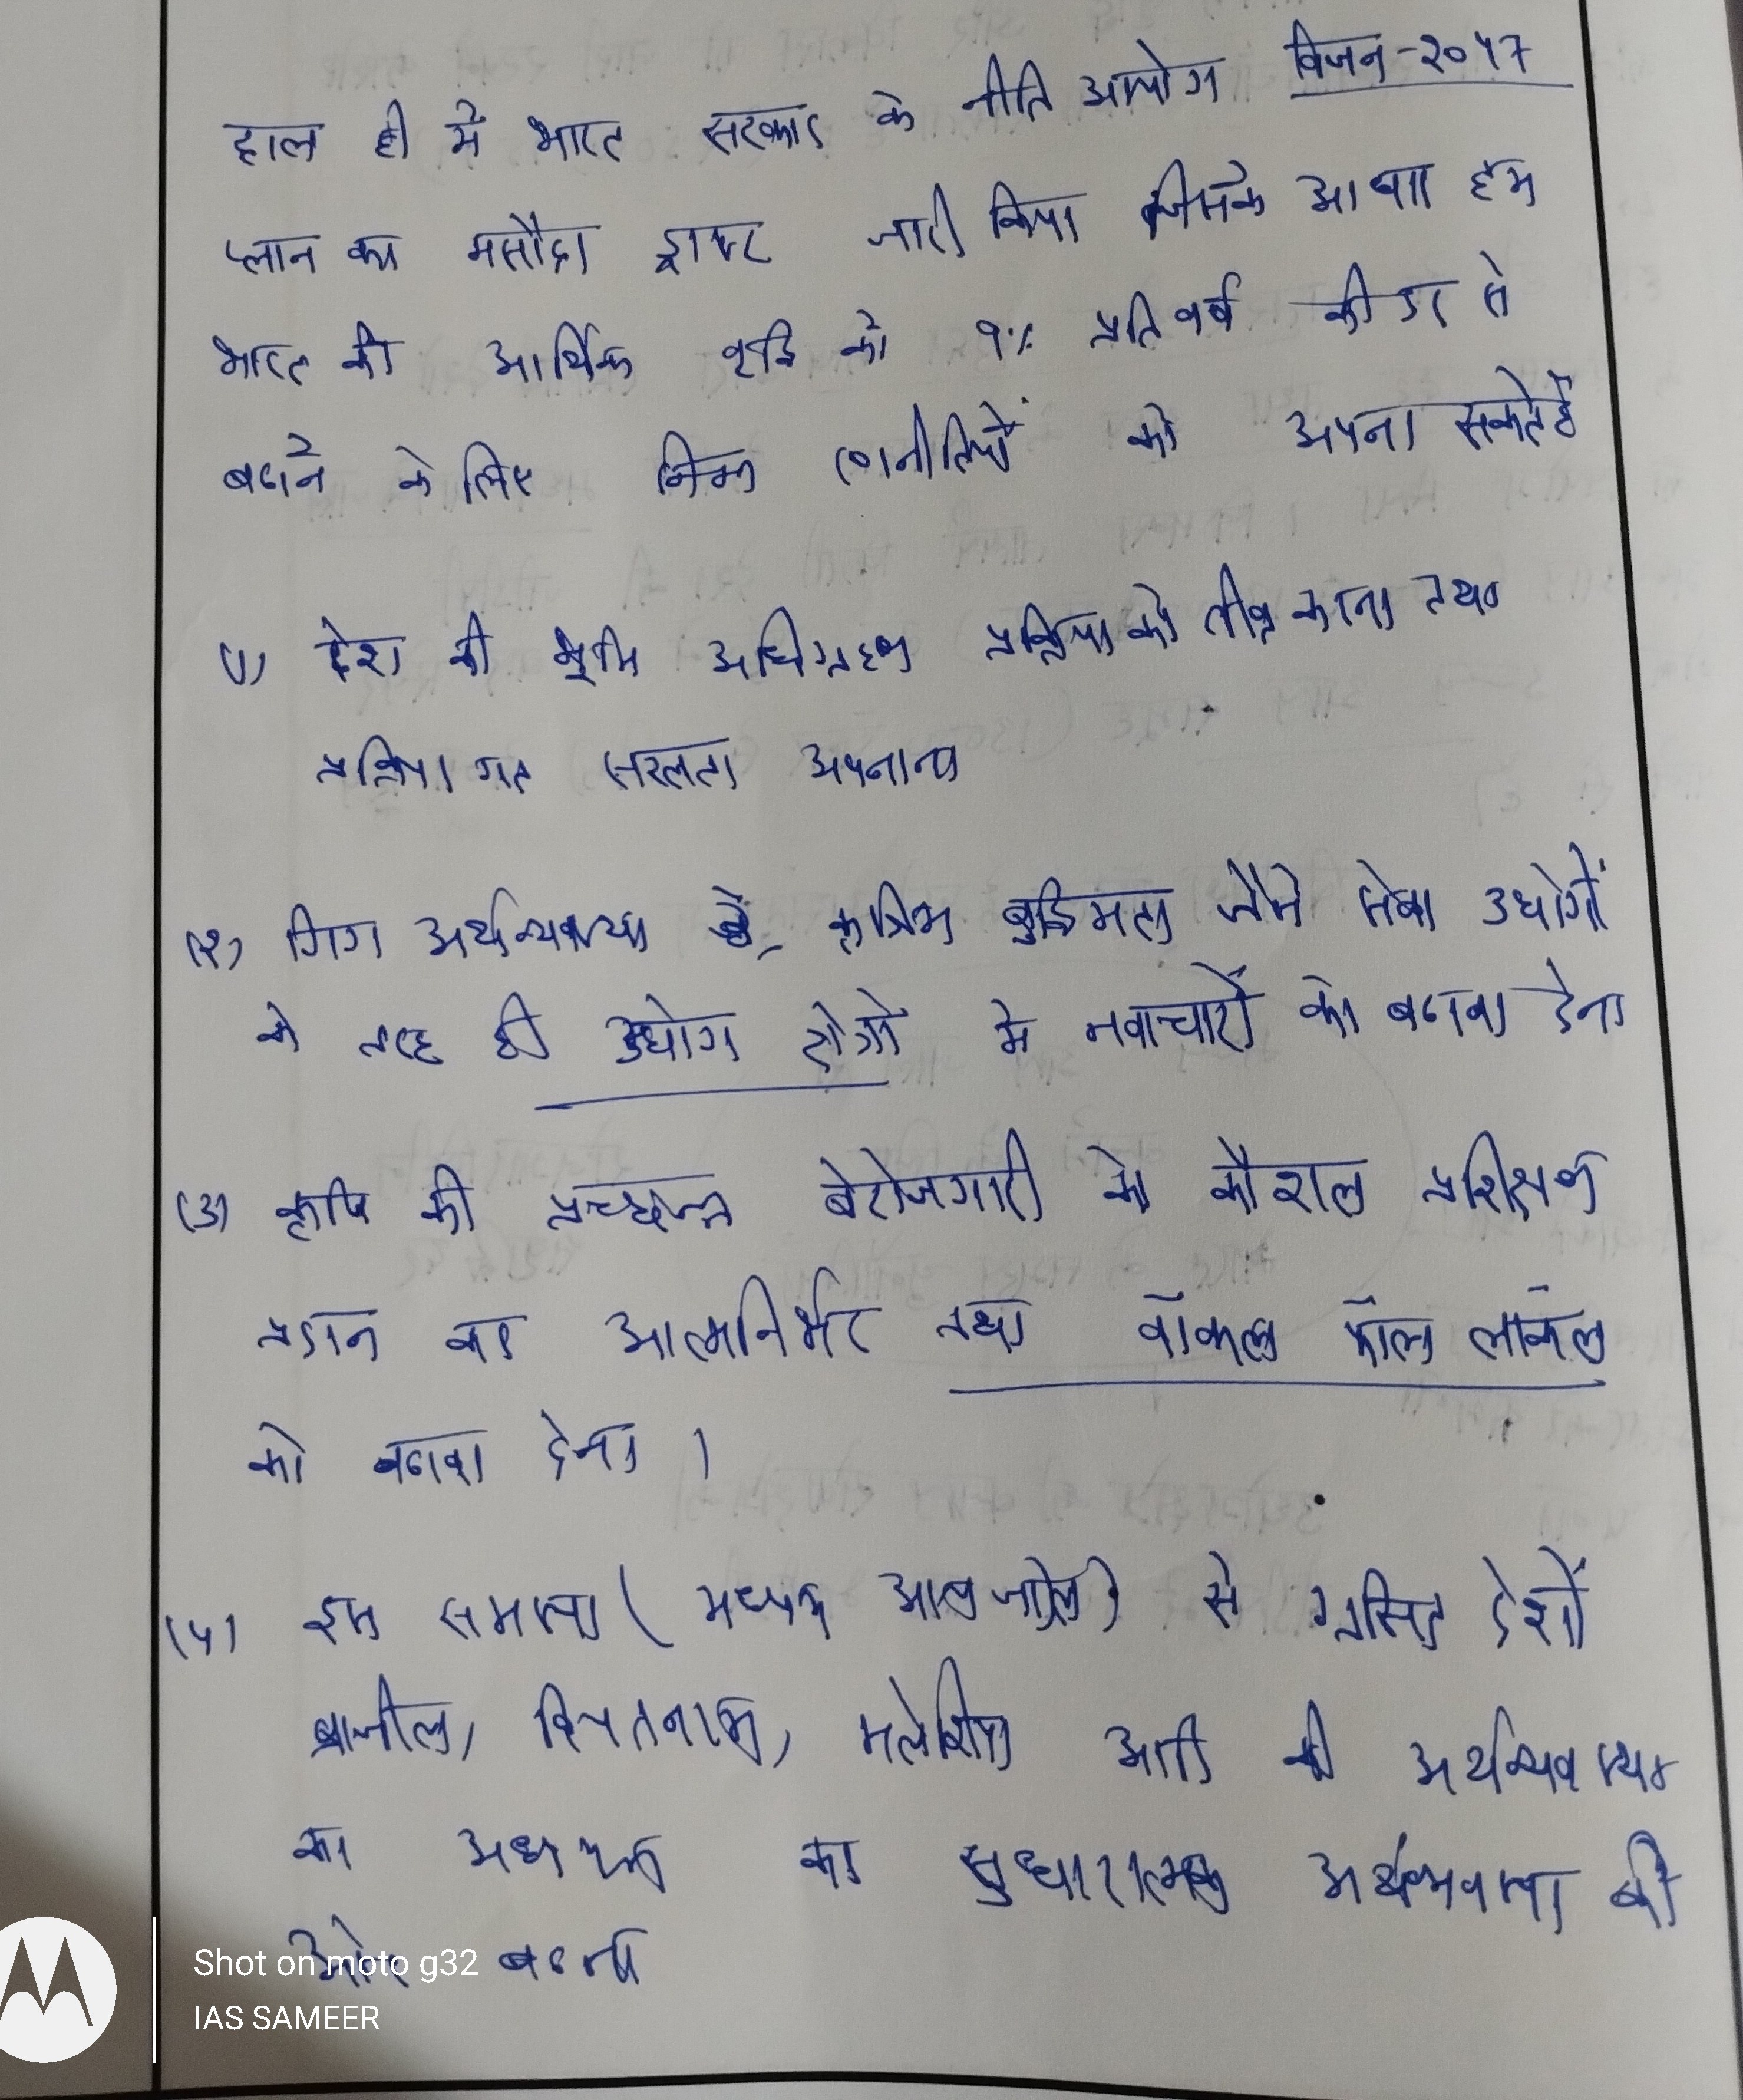 हाल ही में भारत सरकार के नीति आयोग विजन-२०47
प्लान का मसौदा ड्राफ्ट जारी किया जिसके आधार हम
भारत की आर्थिक वृद्धि को 9% प्रति वर्ष की दर से
बढाने के लिए निम्न रणनीतियों को अपना सकते हैं
(1) देश की भूमि अधिग्रहण प्रक्रिया को तीव्र करना तथा
प्रक्रिया गत सरलता अपनाना
(२) गिग अर्थव्यवस्था कृत्रिम बुद्धिमता जैसे सेवा उधोगों
के तरह ही उधोग क्षेत्रो मे नवाचारों को बढावा देना
(3) कृषि की प्रच्छन्न बेरोजगारी को कौशल प्रशिक्षण
प्रदान कर आत्मनिर्भर तथा वॉकल फॉल लॉकल
को बढावा देना ।
(4) इस समस्या (मध्यम आय जाल) से ग्रसित देशों
ब्राजील, वियतनाम, मलेशिया आदि की अर्थव्यवस्था
का अध्ययन कर सुधारात्मक अर्थव्यवस्था की
ओर बढना
Shot on moto g32
IAS SAMEER